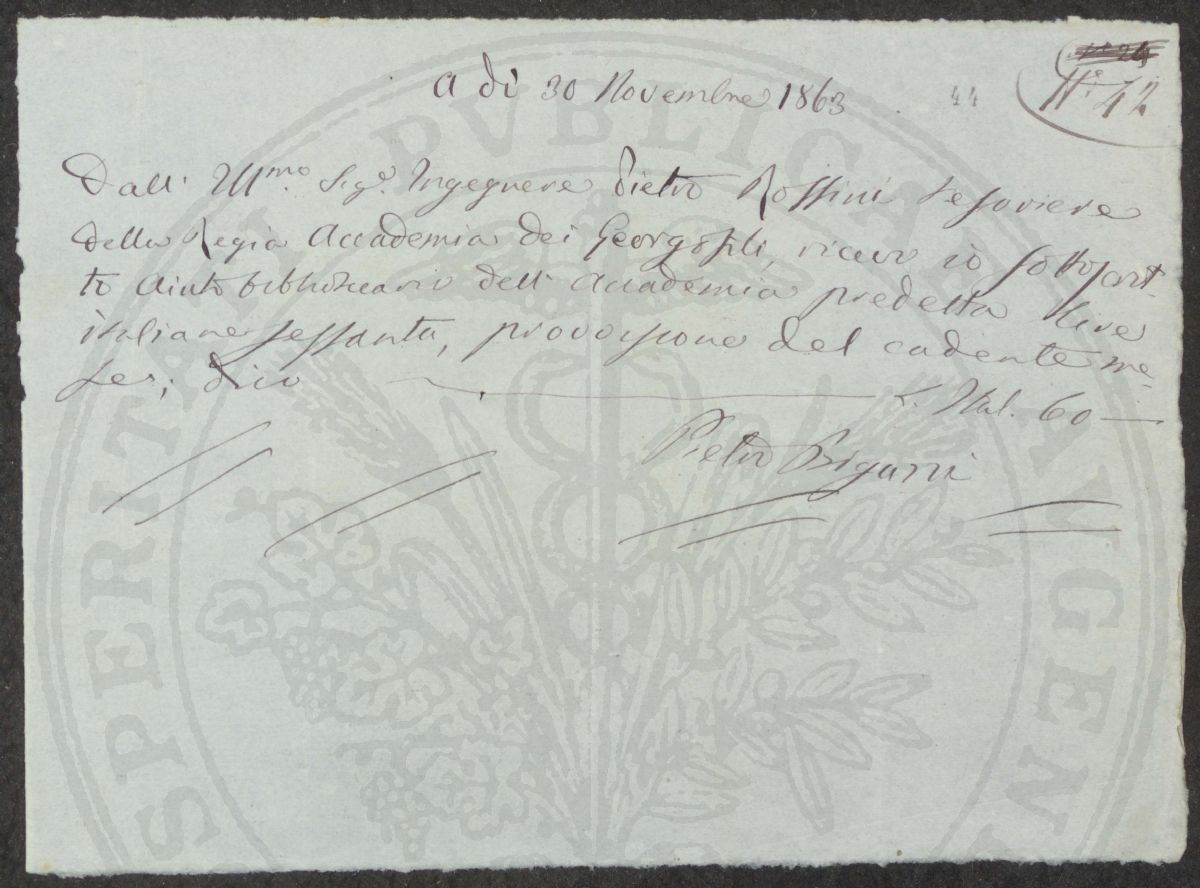 N.° 42
44
A dì 30 Novembre 1863
Dall' Ill.mo Sig.e Ingegnere Pietro Rossini Tesoriere
della Regia Accademia dei Georgofili, ricevo io sottoscrit-
to aiuto bibliotecario dell' Accademia predetta lire
italiane sessanta, provvisione del cadente me-
se; dico L. Ital. 60
Pietro Bigazzi
PROSPERITATI PUBLICAE AUGEN